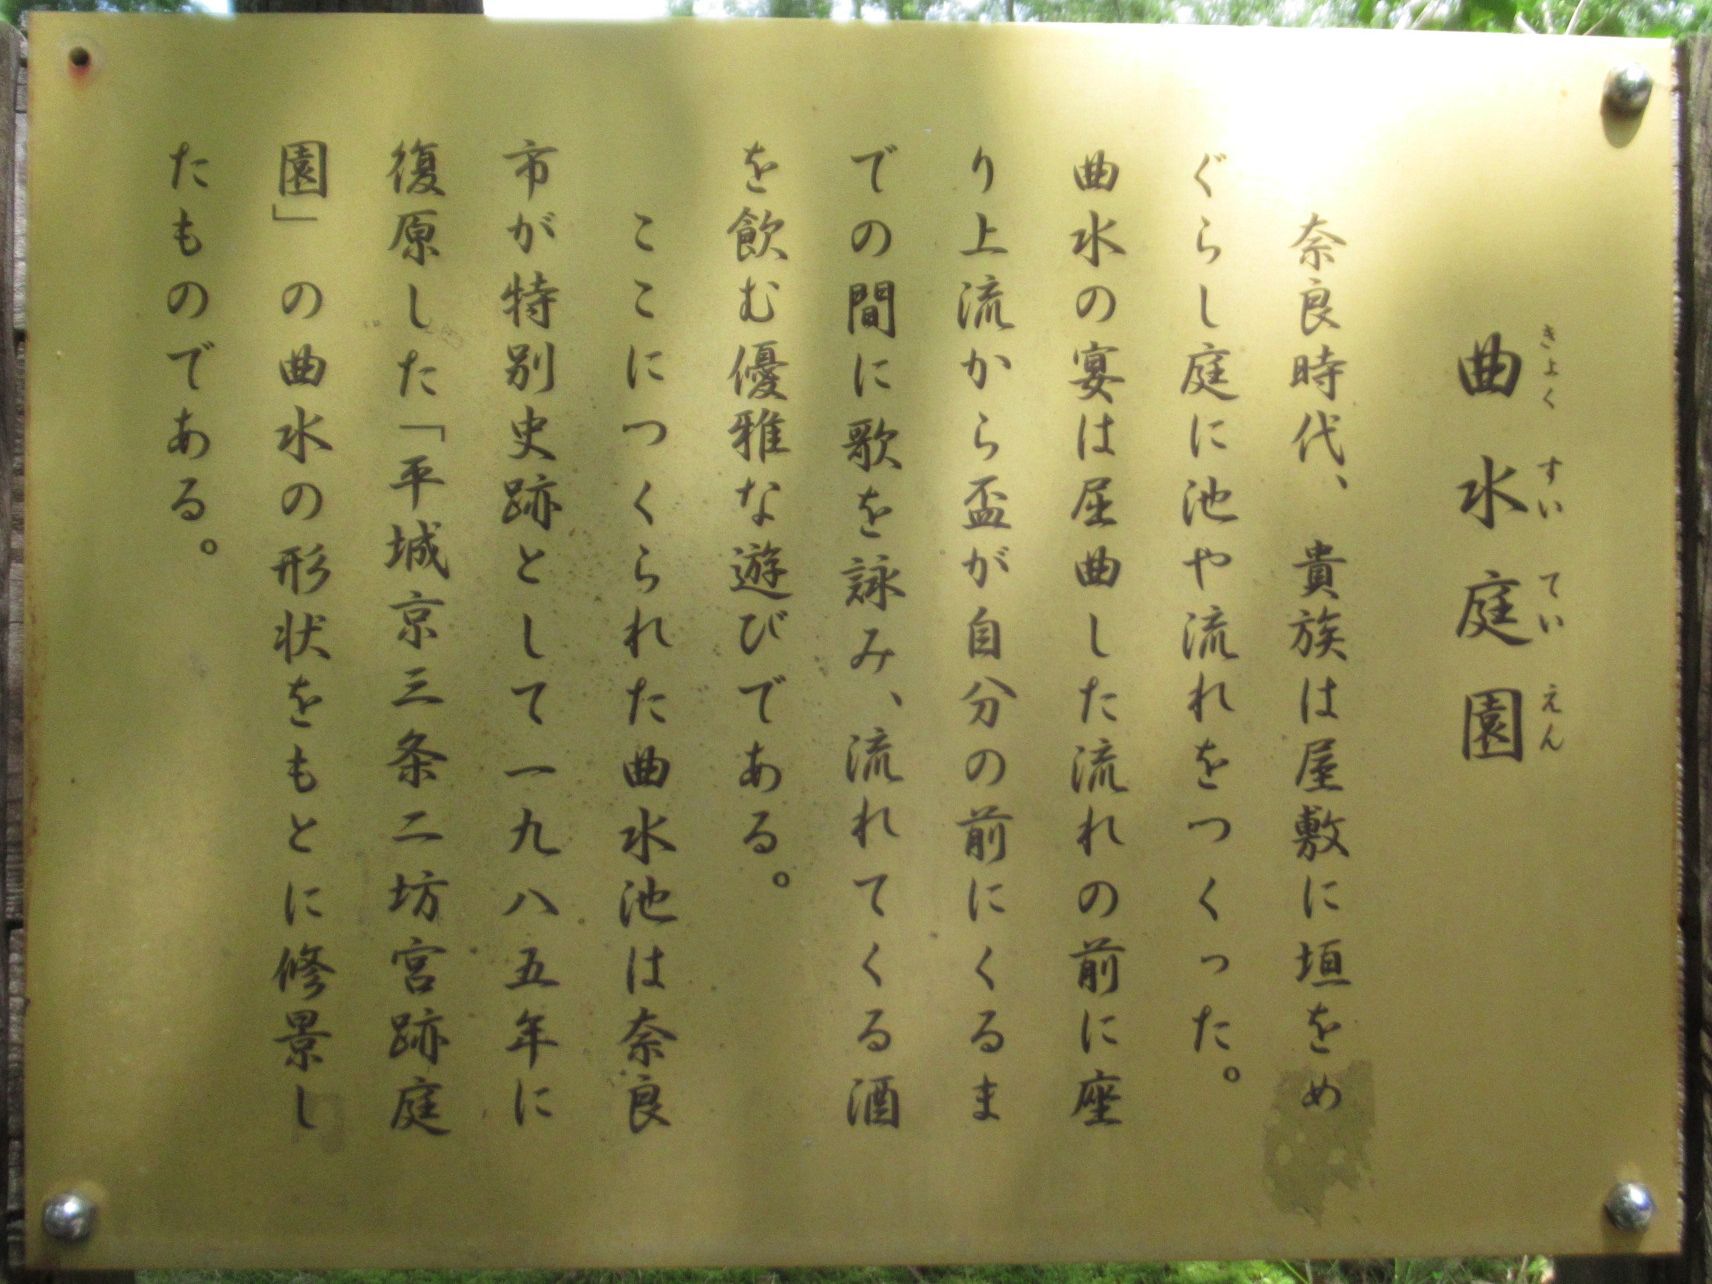 曲水庭園
きょくすいていえん
奈良時代、貴族は屋敷に垣をめ
ぐらし庭に池や流れをつくった。
曲水の宴は屈曲した流れの前に座
り上流から盃が自分の前にくるま
での間に歌を詠み、流れてくる酒
を飲む優雅な遊びである。
ここにつくられた曲水池は奈良
市が特別史跡として一九八五年に
復原した「平城京三条二坊宮跡庭
園」の曲水の形状をもとに修景し
たものである。